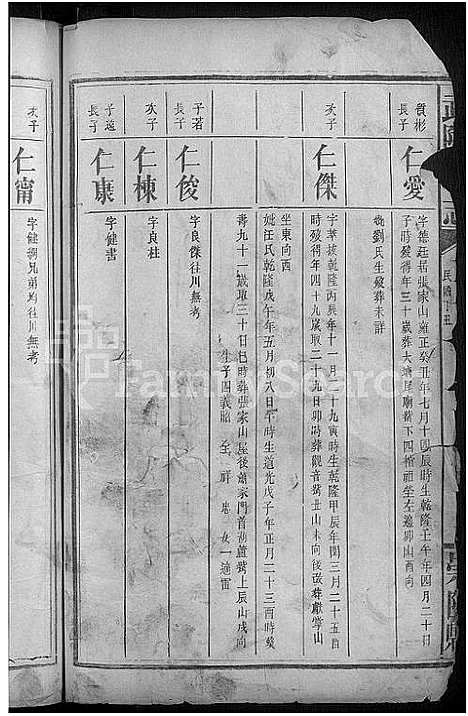 賓彬
長子
仁愛
字德
居張家山雍正癸丑年七月十四辰時生乾隆壬午年四月二十日
子時歿得年三十歲葬大塘尾廟
下四
祖塋左邊卯山酉向
劉氏生歿葬未詳
次子
仁傑
字萃
乾隆丙辰年十一月二十九寅時生乾隆甲辰年閏三月二十五酉
時歿得年四十九歲取二十九日卯時葬觀音
丑山未向後改葬
掌山
坐東向西
妣汪氏乾隆戊午年五月初八日午時生道光戊子年正月二十三酉時歿
壽九十一歲取三十日巳時葬張家山屋後蕭家門首葫蘆
上辰山戌向
生子四義
全 祥
女一適雷
子若
長子
仁俊
字良傑往川無考
次子
仁棟
字良柱
子遠
長子
仁康
字健書
次子
仁甯
字健
兄弟均往川無考
FamilySearch